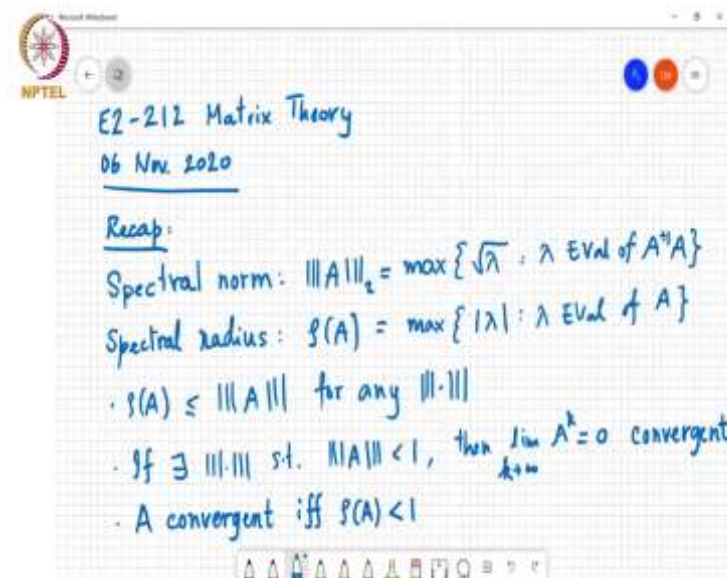 Microsoft Whiteboard
NPTEL
E2-212 Matrix Theory
06 Nov. 2020
Recap:
Spectral norm: |||A|||₂ = max{√λ : λ EVal of AᴴA}
Spectral radius: ρ(A) = max{|λ| : λ EVal of A}
· ρ(A) ≤ |||A||| for any |||·|||
· If ∃ |||·||| s.t. |||A||| < 1, then lim Aᵏ = 0 convergent
k→∞
· A convergent iff ρ(A) < 1